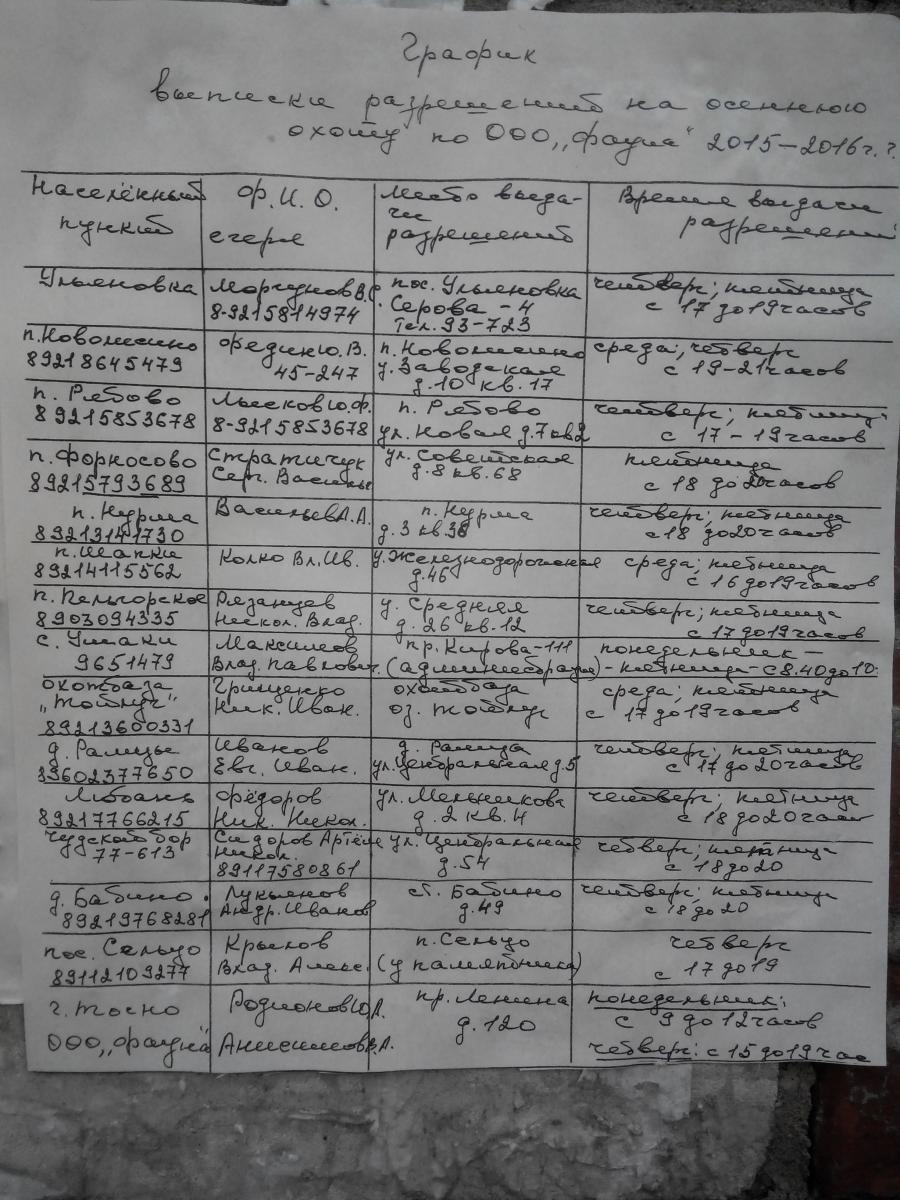 График
выписки разрешений на осеннюю
охоту по ООО „Фауна" 2015-2016г.г.
Населённый пункт
Ф.И.О. егеря
Место выдачи разрешений
Время выдачи разрешений
Ульяновка
Моргунов В.С.
8-9215814974
пос. Ульяновка
Серова - 4
Тел. 93-723
четверг; пятница
с 17 до 19 часов
п. Новолисино
89218645479
Федин Ю.В.
45-247
п. Новолисино
у. Заводская
д.10 кв.17
среда; четверг
с 19-21 часов
п. Рябово
89215853678
Лысков Ю.Ф.
8-9215853678
п. Рябово
ул. Новая д.7 кв2
четверг; пятниц
с 17-19 часов
п. Форносово
89215793689
Стратичук
Серг. Василье
ул. Советская
д.8 кв.68
пятница
с 18 до 20 часов
п. Нурма
89213141730
Васильев А.А.
п. Нурма
д.3 кв.38
четверг; пятница
с 18 до 20 часов
п. Шапки
89214115562
Колко Вл.Ив.
у. Железнодорожная
д.46
среда; пятница
с 16 до 19 часов
п. Пельгорское
8903094335
Рязанцев
Нескол. Влад.
у. Средняя
д. 26 кв.12
четверг; пятница
с 17 до 19 часов
с. Ушаки
9651479
Максимов
Влад. Павлович
пр. Кирова-111
(администрация)
понедельник -
- пятница - с 8.40 до 10:
охотбаза
„Мойлуч"
89213600331
Грищенко
Ник. Иван.
охотбаза
оз.
среда; пятница
с 17 до 19 часов
д. Рамцы
89602377650
Иванов
Евг. Иван.
д. Рамцы
ул. Центральная д.5
четверг; пятница
с 17 до 20 часов
Любань
89217766215
Фёдоров
Ник. Никол.
ул. Мельникова
д.2 кв.4
четверг; пятница
с 18 до 20 часов
Чудской бор
77-613
Сидоров Артём
Никол.
89117580861
ул. Центральная
д.54
четверг; пятница
с 18 до 20
д. Бабино
89219768281
Лукьянов
Андр. Иванов
ст. Бабино
д.49
четверг; пятница
с 18 до 20
пос. Сельцо
89112109277
Крылов
Влад. Алекс.
п. Сельцо
(у памятника)
четверг
с 17 до 19
г. Тосно
ООО „Фауна"
Родионов Ю.А.
Анисимов В.А.
пр. Ленина
д.120
понедельник:
с 9 до 12 часов
четверг: с 15 до 19 час